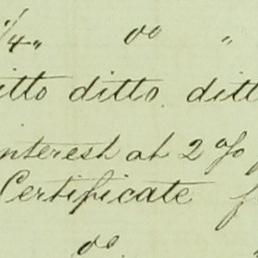 1/4 " do "
ditto ditto ditt
interest at 2 %
Certificate f
do.